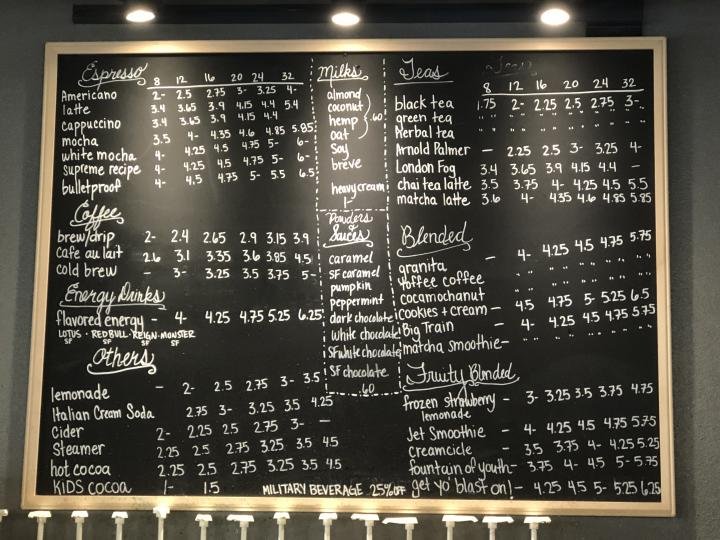 Espresso 8 12 16 20 24 32
Americano 2- 2.5 2.75 3- 3.25 4-
latte 3.4 3.65 3.9 4.15 4.4 5.4
cappuccino 3.4 3.65 3.9 4.15 4.4
mocha 3.5 4- 4.35 4.6 4.85 5.85
white mocha 4- 4.25 4.5 4.75 5- 6-
supreme recipe 4- 4.25 4.5 4.75 5- 6-
bulletproof 4- 4.5 4.75 5- 5.5 6.5
Coffee
brew/drip 2- 2.4 2.65 2.9 3.15 3.9
cafe au lait 2.6 3.1 3.35 3.6 3.85 4.5
cold brew - 3- 3.25 3.5 3.75 5-
Energy Drinks
flavored energy - 4- 4.25 4.75 5.25 6.25
LOTUS · RED BULL · REIGN · MONSTER
SF SF SF
Others
lemonade - 2- 2.5 2.75 3- 3.5
Italian Cream Soda 2.75 3- 3.25 3.5 4.25
Cider 2- 2.25 2.5 2.75 3- -
Steamer 2.25 2.5 2.75 3.25 3.5 4.5
hot cocoa 2.25 2.5 2.75 3.25 3.5 4.5
KIDS cocoa 1- 1.5
MILITARY BEVERAGE .25¢ OFF
Milks
almond
coconut
hemp } .60
oat
soy
breve
heavy cream
1-
Powders
&
Sauces
caramel
SF caramel
pumpkin
peppermint
dark chocolate
white chocolate
SF white chocolate
SF chocolate
.60
Teas
8 12 16 20 24 32
black tea 1.75 2- 2.25 2.5 2.75 3-
green tea " " " " " "
herbal tea " " " " " "
Arnold Palmer - 2.25 2.5 3- 3.25 4-
London Fog 3.4 3.65 3.9 4.15 4.4 -
chai tea latte 3.5 3.75 4- 4.25 4.5 5.5
matcha latte 3.6 4- 4.35 4.6 4.85 5.85
Blended
granita - 4- 4.25 4.5 4.75 5.75
Yoffee coffee " " " " "
cocamochanut " " " " "
cookies + cream - 4.5 4.75 5- 5.25 6.5
Big Train - 4- 4.25 4.5 4.75 5.75
matcha smoothie - " " " " "
Fruity Blended
frozen strawberry - 3- 3.25 3.5 3.75 4.75
lemonade
Jet Smoothie - 4- 4.25 4.5 4.75 5.75
creamcicle - 3.5 3.75 4- 4.25 5.25
fountain of youth - 3.75 4- 4.5 5- 5.75
get yo' blast on! - 4.25 4.5 5- 5.25 6.25